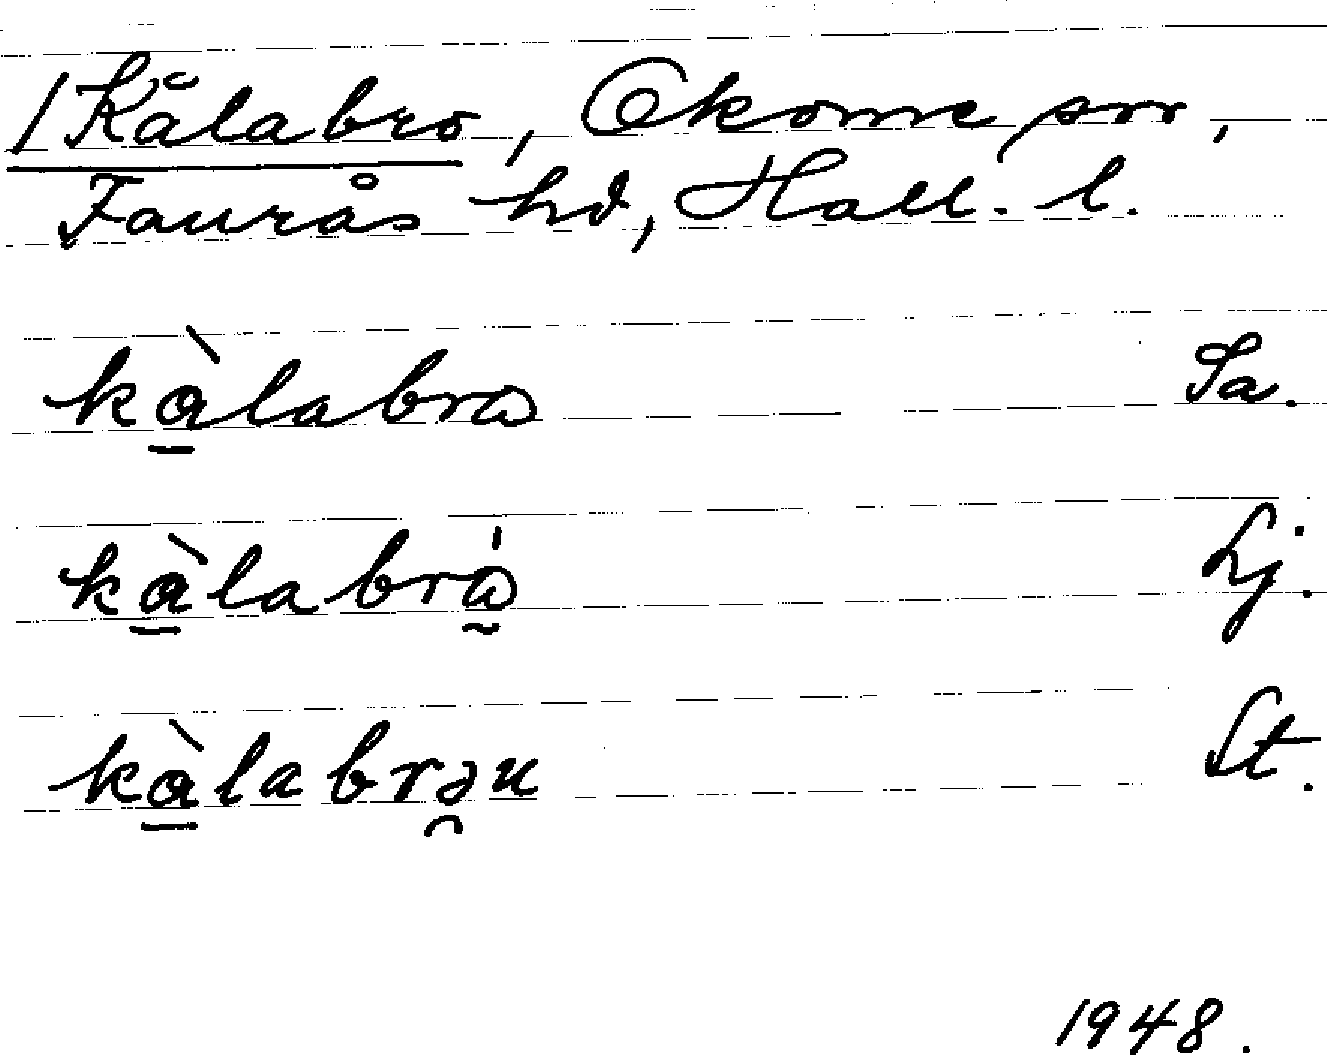 / Kålabro, Okome sn,
Faurås hd, Hall. l.
kàlabra Sa.
kàlabrá Lj.
kàlabrəu St.
1948.